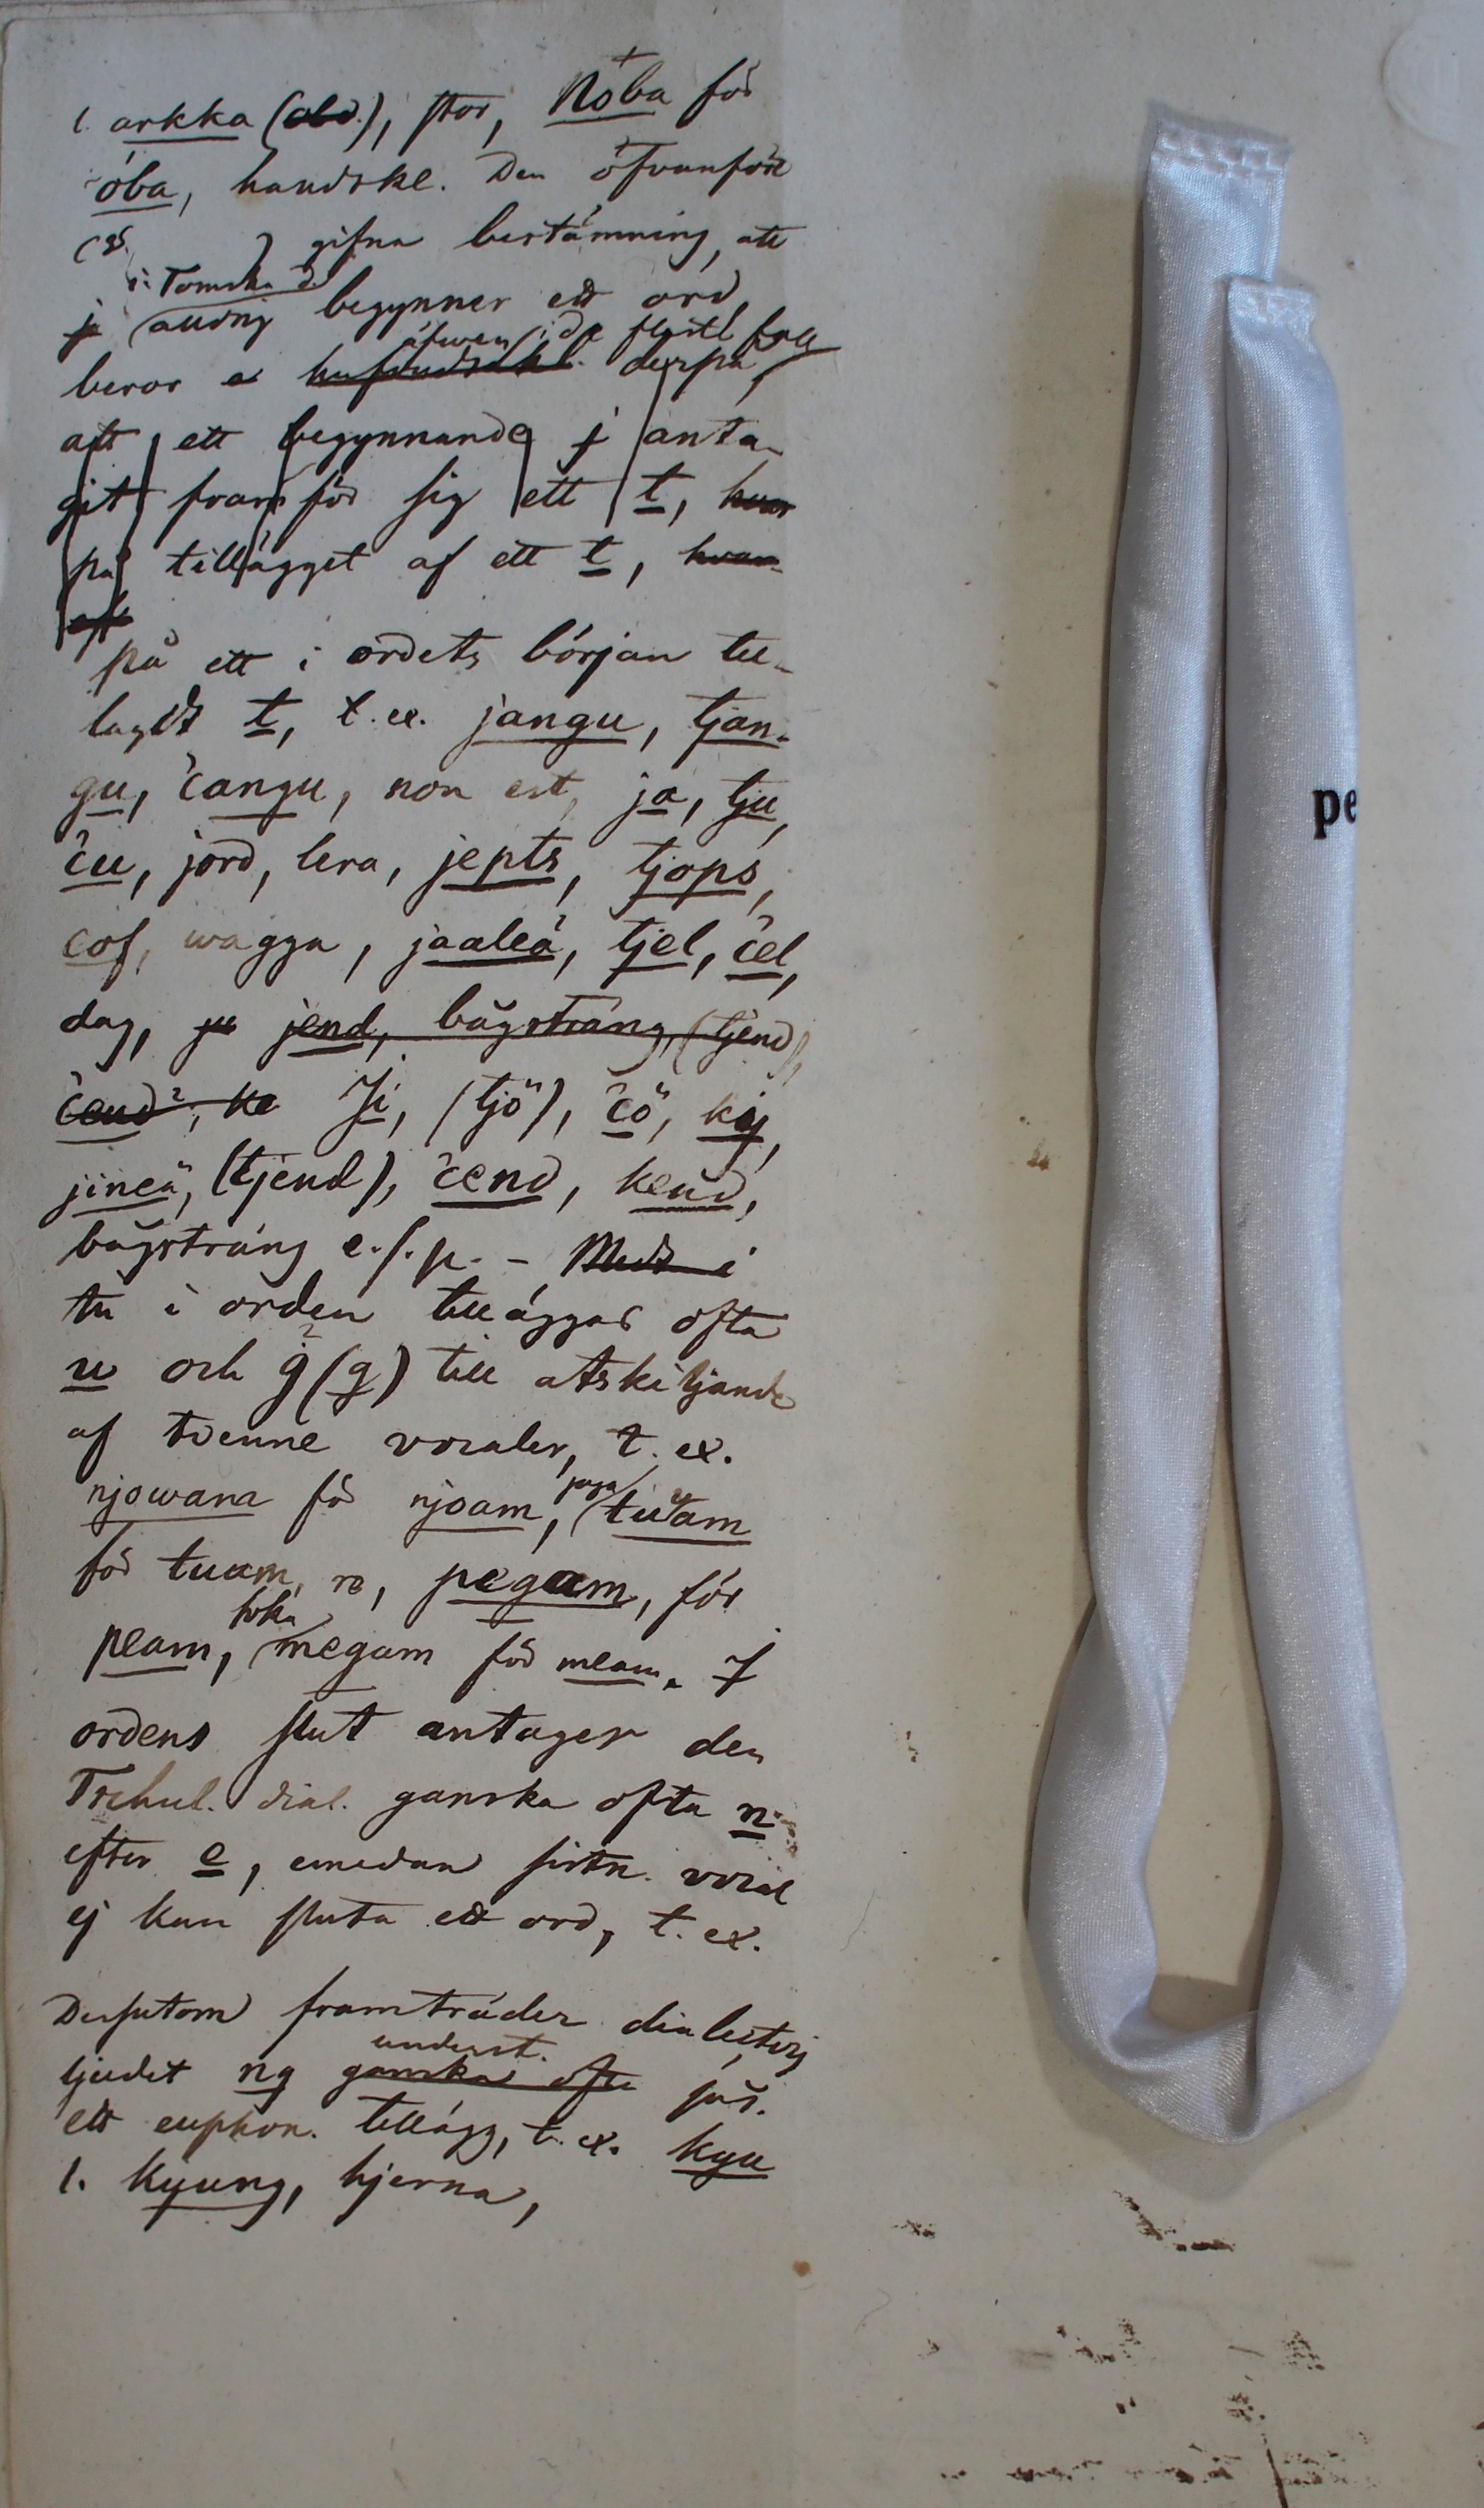 l. arkka (obd.), stor, Nóba för
óba, handske. Den ófvanföre
(§. ) gifna bestämning, att
i Tomska d.
j aldrig begynner ett ord,
äfwen i de flesta fall
beror e hufvudsakl. derpå,
att ett begynnande j anta-
git framför sig ett t, hvar
på tillägget af ett t, hvar-
på ett i ordets början till-
lagdt t, t. ex. jangu, tjan-
gu, čangu, non est, ja, tju,
ču, jord, lera, jepts, tjops,
čof, wagga, jaaleä, tjel, čel,
dag, ju jend, bågsträng, (tjend),
čend, ke Ji, (tjö), čö, kij,
jineä, (tjend), čend, kend,
bågsträng e. s. p. – Midt i
tu i orden tillägges ofta
w och g (g) till åtskiljande
af tvenne vocaler, t. ex.
njowana för njoam, tuwam
jaga
för tuam, ro, pegam, för
söka
peam, megam för meam. I
ordens slut antager den
Tschul. dial. ganska ofta n
efter e, emedan sistn. vocal
ej kan sluta ett ord, t. ex.
Dessutom framträder dialectvis
underst.
ljudet ng ganska ofta sås.
ett euphon. tillägg, t. ex. kyu
l. kyung, hjerna,
pe